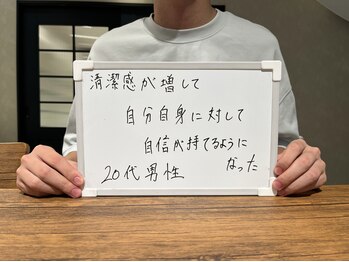 清潔感が増して
自分自身に対して
自信が持てるように
なった
20代男性